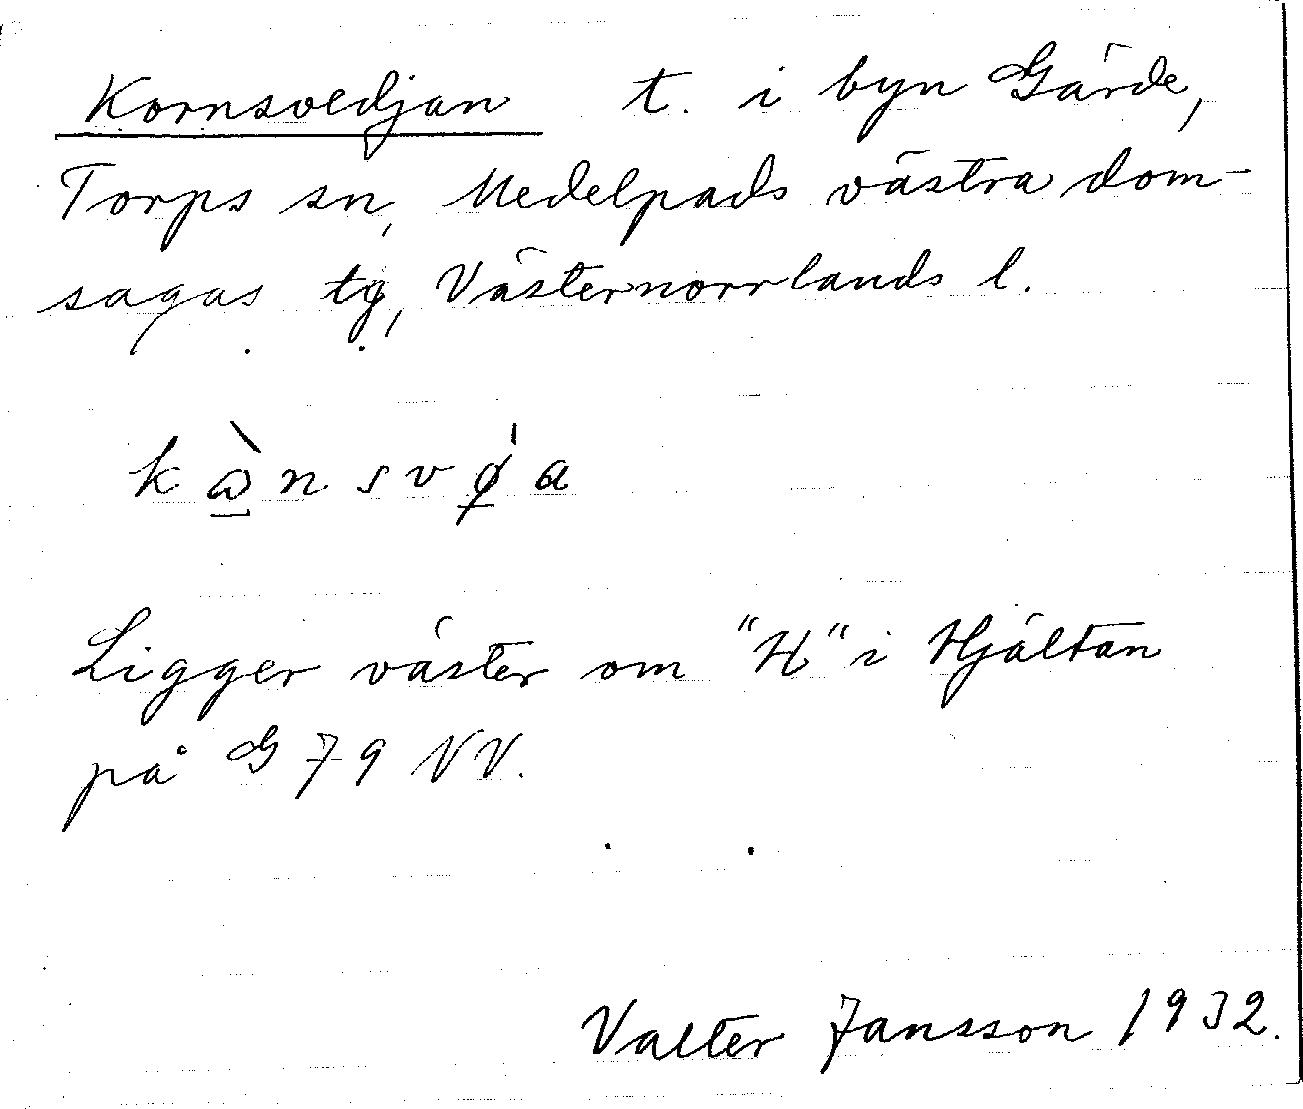 Kornsvedjan t. i byn Gärde,
Torps sn, Medelpads västra dom-
sagas tg, Västernorrlands l.
kὼ̲nsvø̲̍a
Ligger väster om "H" i Hjältan
på G 79 NV.
Valter Jansson 1932.